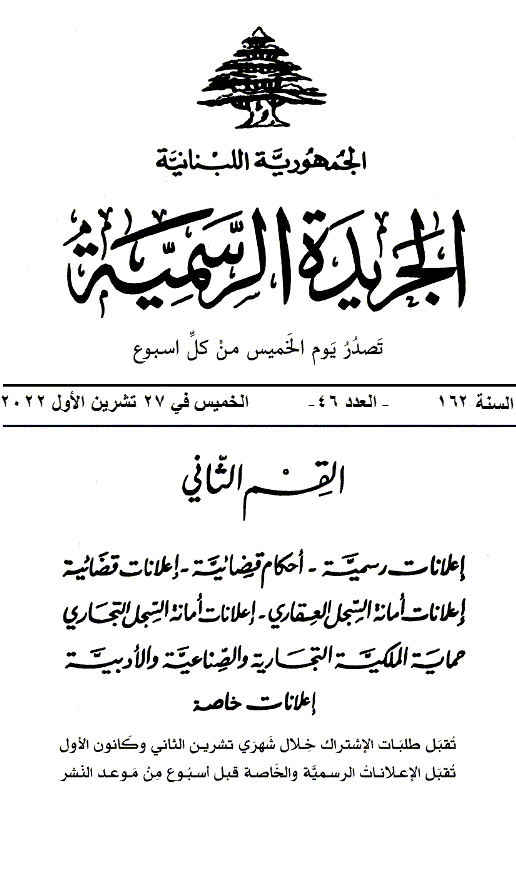 الجُمهُوريَّة اللبْنانيَّة
الجَريدَة الرسَّمِيَّة
تَصدُرُ يَوم الخَميس منْ كلِّ اسبوع
السنة ١٦٢ - العدد ٤٦- الخميس في ٢٧ تشرين الأول ٢٠٢٢
القِسْم الثّاني
إعلانات رسميَّة - أحكام قضائيَّة - إعلانات قضائية
إعلانات أمانة السِّجل العقاري - إعلانات أمانة السِّجل التجاري
حماية الملكيَّة التجارية والصِّناعيَّة والأدبيَّة
إعلانات خاصة
تُقبَل طلبَات الإشتراك خِلال شَهرَي تشرين الثاني وكَانون الأول
تُقبَل الإعلاناتُ الرسميَّة والخَاصة قبل أسبُوع مِنْ مَوعد النَشر